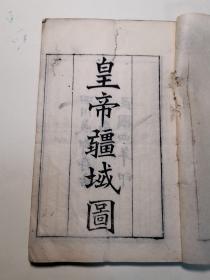 皇帝疆域圖